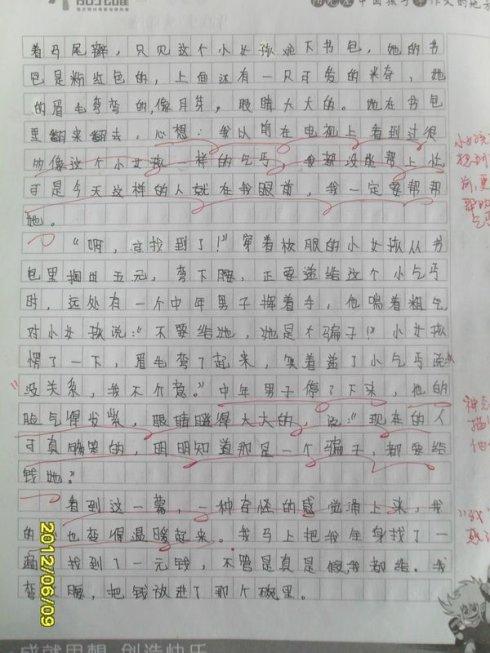 着马尾辫，只见这个小女孩放下书包，她的书
包是粉红色的，上面还有一只可爱的米奇，她
的眉毛弯弯的，像月芽，眼睛大大的。她在书包
里翻来翻去，心想：我以前在电视上看到过很
多像这个小女孩一样的乞丐，我都没能帮上忙，
可是今天这样的人就在我眼前，我一定要帮帮
她。
“啊，找到了！”穿着校服的小女孩从书
包里掏出五元，弯下腰，正要递给这个小乞丐
时，远处有一个中年男子挥着手，他喘着粗气
对小女孩说：“不要给她，她是个骗子！”小女孩
愣了一下，眉毛弯了起来，笑着对小乞丐说：
“没关系，我不介意。”中年男子停了下来，他的
脸气得发紫，眼睛瞪得大大的，说：“现在的人
可真搞笑的，明明知道那是一个骗子，都要给
钱她。”
看到这一幕，一种奇怪的感觉涌上来，我
的 也变得温暖起来。我马上把我全身找了一
遍 找到了一元钱，不管是真是假我都给。我
弯 腰，把钱放进了那个碗里。
2012/06/09
成就思想 创造快乐